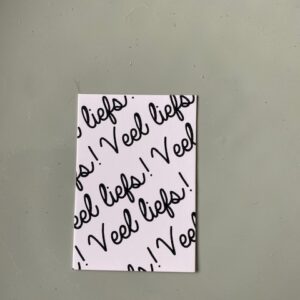 liefs! Veel
liefs! Veel liefs!
Veel liefs! Veel
liefs! Veel liefs!
! Veel